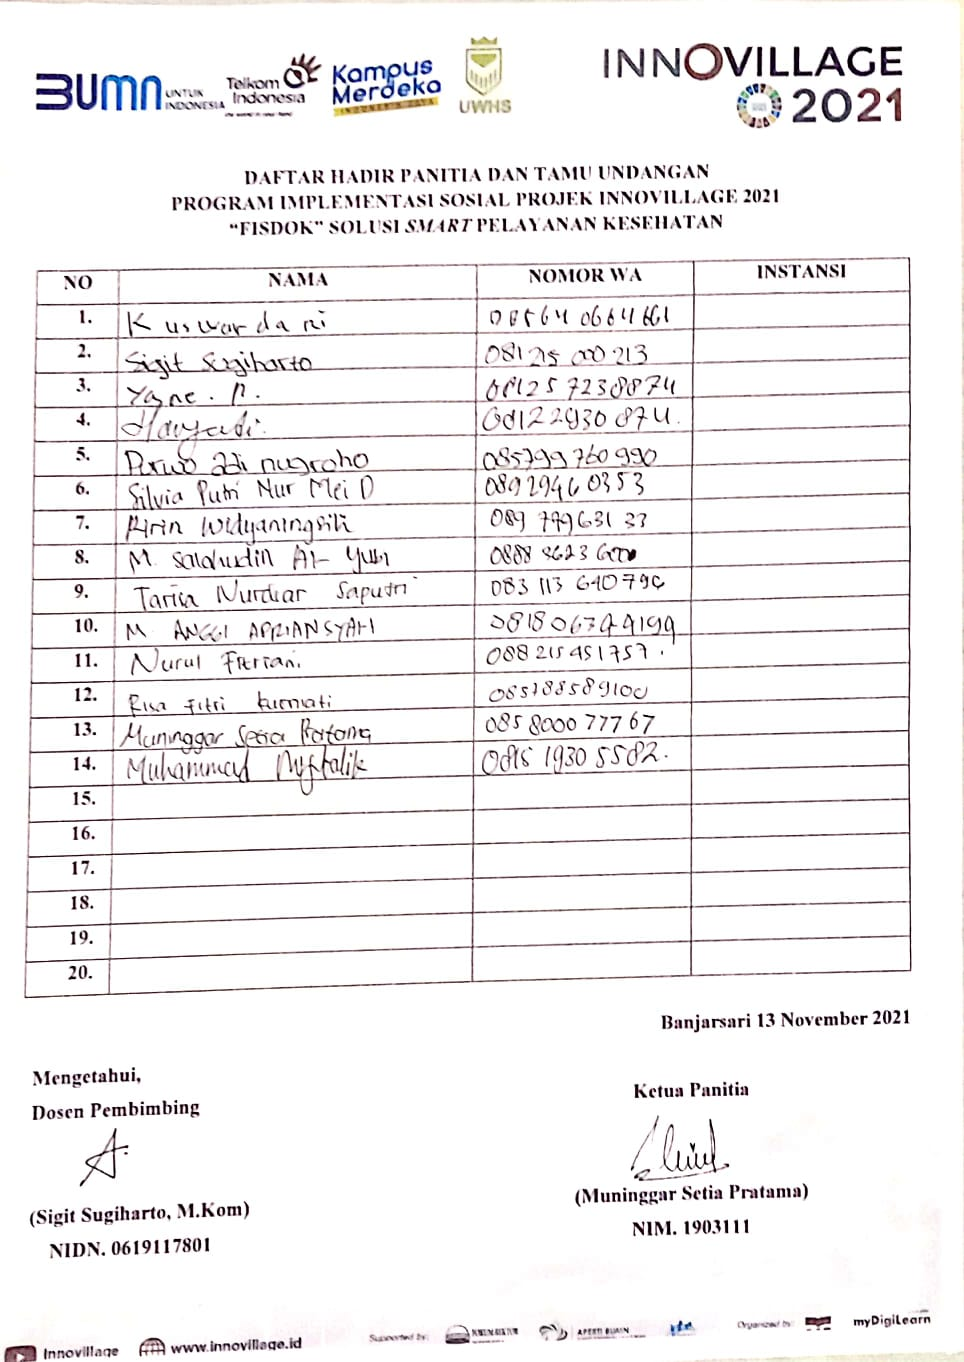 BUMN UNTUK INDONESIA Telkom Indonesia the world in your hand Kampus Merdeka INDONESIA JAYA UWHS INNOVILLAGE 2021
DAFTAR HADIR PANITIA DAN TAMU UNDANGAN
PROGRAM IMPLEMENTASI SOSIAL PROJEK INNOVILLAGE 2021
“FISDOK” SOLUSI SMART PELAYANAN KESEHATAN
NO NAMA NOMOR WA INSTANSI
1. Kuswardani 085640664661
2. Sigit Sugiharto 08125 000 213
3. Yane. P. 081257238874
4. Haryadi. 08122930874.
5. Purwo adi nugroho 085799760990
6. Silvia Putri Nur Mei D 08929460353
7. Ririn Widyaningsih 089 779631 33
8. M. Salahudin Al-
9. Tarisa Nurdiar Saputri 083 113 640 796
10. M ANGGI APRIANSYAH
11. Nurul Fitriani. 088 215 451 757.
12. Risa Fitri Kurniati
13. Muninggar Setia Pratama 085 8000 77767
14. Muhammad Miftalik 0815 1930 5582.
15.
16.
17.
18.
19.
20.
Banjarsari 13 November 2021
Mengetahui,
Dosen Pembimbing
Ketua Panitia
(Sigit Sugiharto, M.Kom)
NIDN. 0619117801
(Muninggar Setia Pratama)
NIM. 1903111
Innovillage www.innovillage.id Supported by: Organized by: myDigiLearn